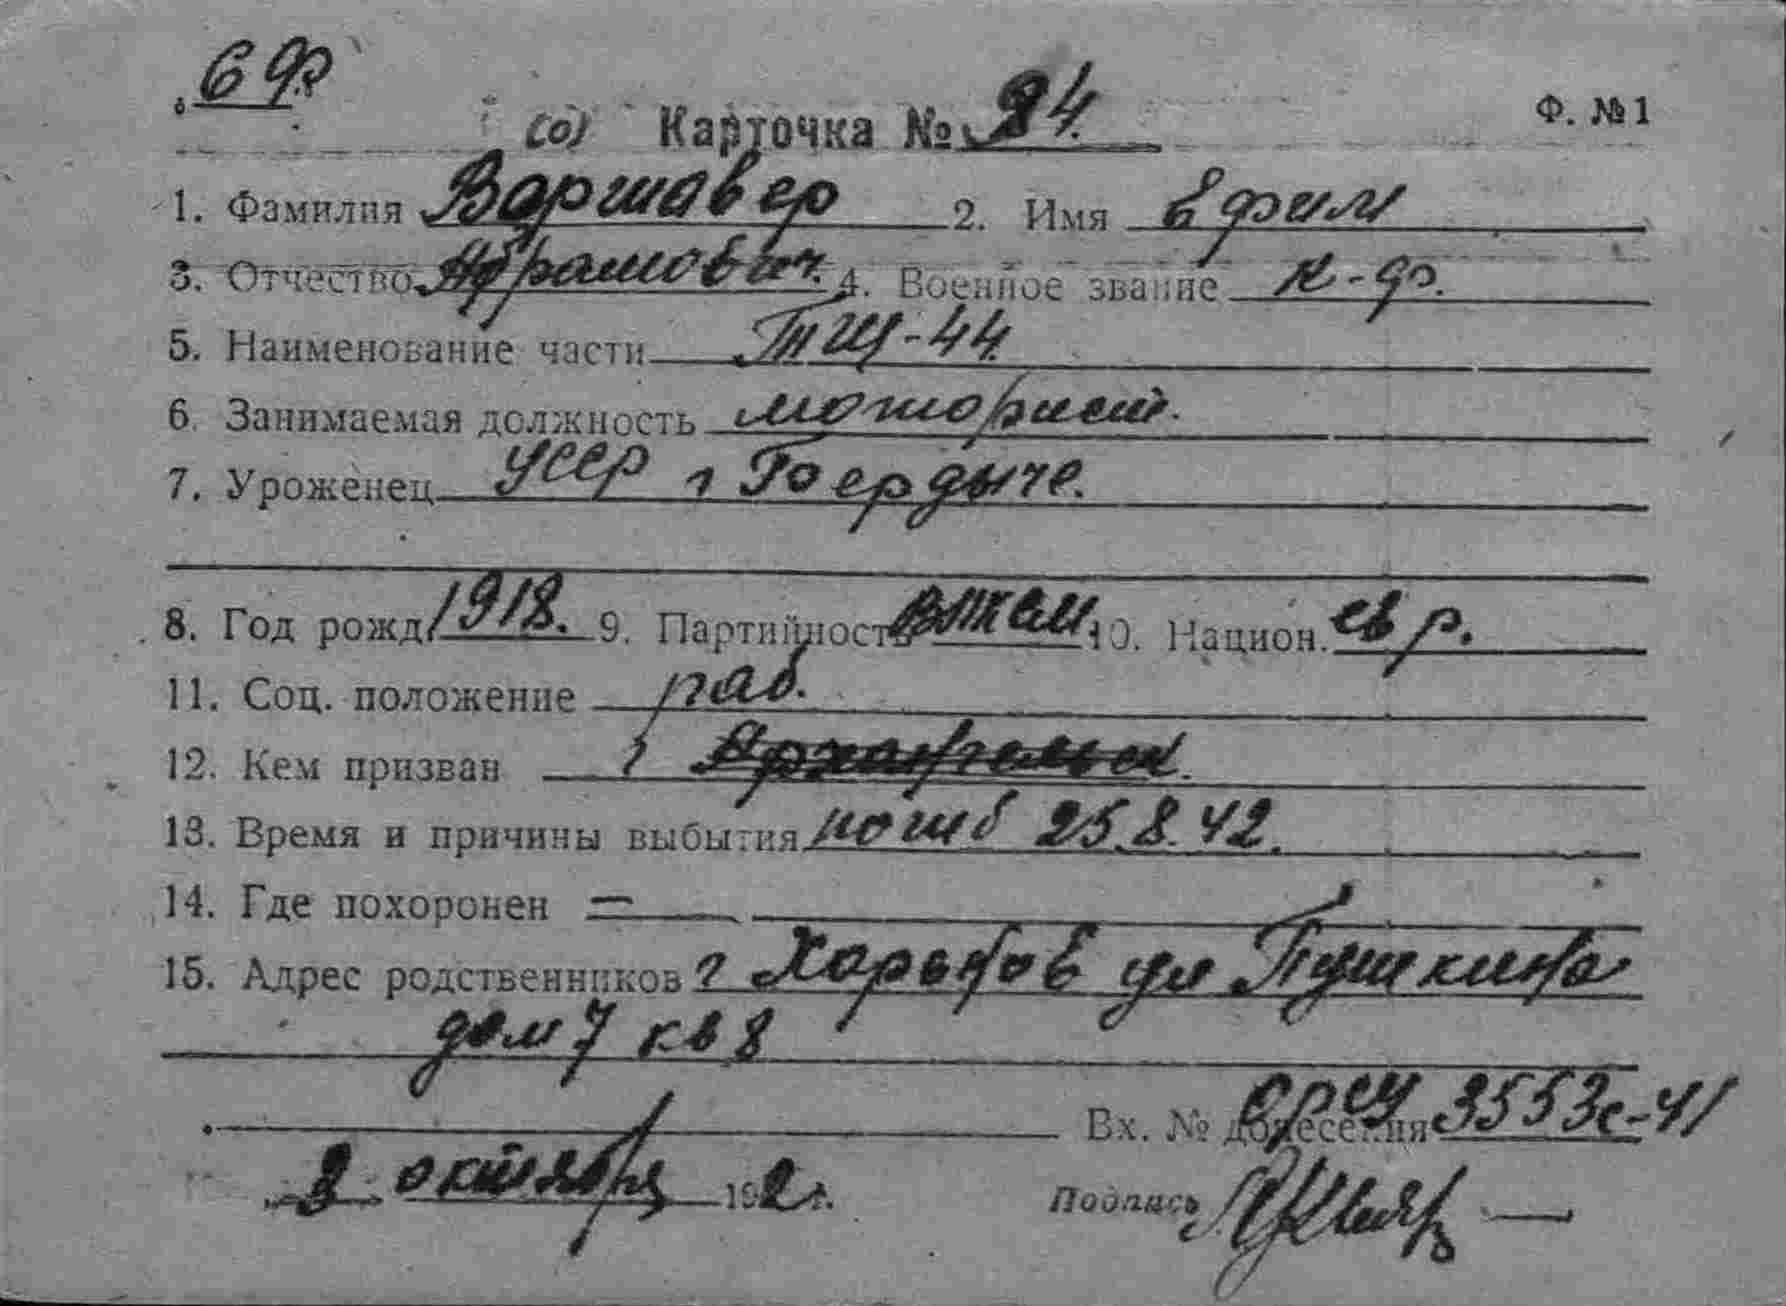 6 ФР
(о) Карточка № 84. Ф. № 1
1. Фамилия Варшавер 2. Имя Ефим
3. Отчество Абрамович. 4. Военное звание к-ф.
5. Наименование части ТЩ-44.
6. Занимаемая должность моторист.
7. Уроженец УССР г Бердыче.
8. Год рожд 1918. 9. Партийность влксм. 10. Национ. евр.
11. Соц. положение раб.
12. Кем призван г Архангельск.
13. Время и причины выбытия погиб 25.8.42.
14. Где похоронен =
15. Адрес родственников г Харьков ул Пушкина
дом 7 кв 8
Вх. № донесения 3553с-41
октября 192 г. Подпись